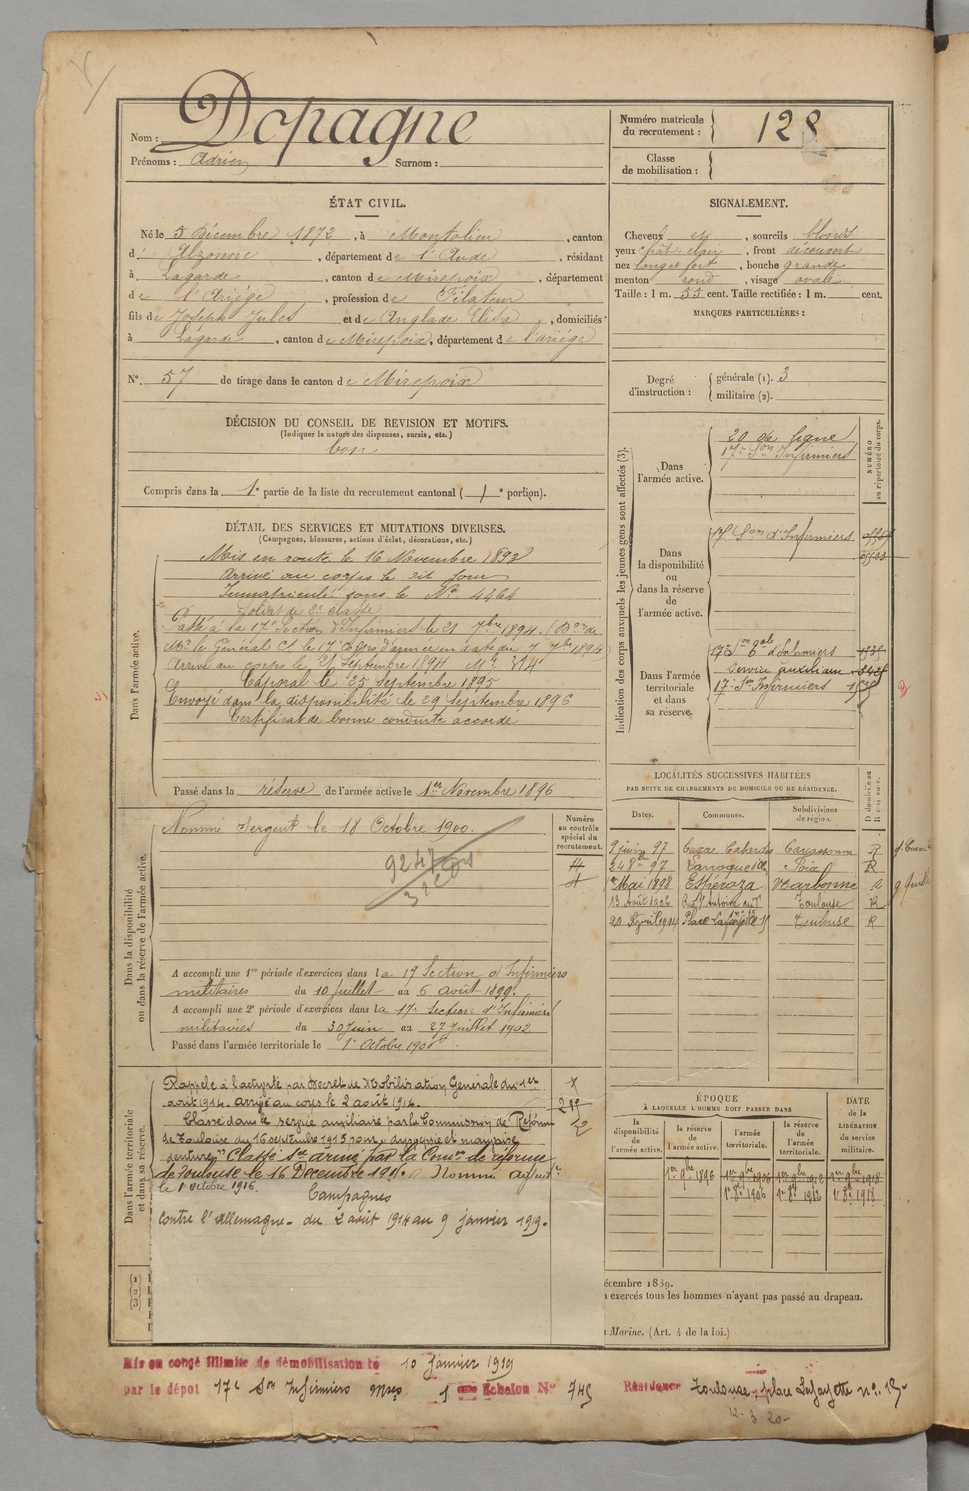 Nom : Dopagne
Prénoms : Adrien Surnom :
Numéro matricule du recrutement : 128
Classe de mobilisation :
ÉTAT CIVIL.
Né le 5 Décembre 1872, à Montolieu, canton
d' Alzonne, département de l'Aude, résidant
à Lagarde, canton de Mirepoix, département
de l'Ariège, profession de Filateur
fils de Joseph Jules et de Anglade Elisa, domiciliés
à Lagarde, canton de Mirepoix, département de l'ariège
N°. 57 de tirage dans le canton de Mirepoix
SIGNALEMENT.
Cheveux et, sourcils blonds
yeux chât. clair, front découvert
nez longet fort, bouche grande
menton rond, visage ovale
Taille : 1 m. 55 cent. Taille rectifiée : 1 m. cent.
MARQUES PARTICULIÈRES :
Degré d'instruction : générale (1). 3
militaire (2).
DÉCISION DU CONSEIL DE REVISION ET MOTIFS.
(Indiquer la nature des dispenses, sursis, etc.)
bon
Compris dans la 1e partie de la liste du recrutement cantonal ( 1e portion).
DÉTAIL DES SERVICES ET MUTATIONS DIVERSES.
(Campagnes, blessures, actions d'éclat, décorations, etc.)
Dans l'armée active.
Mis en route le 16 Novembre 1893
Arrivé au corps le dit jour
Immatriculé sous le N° 4464
Soldat de 2e classe
Passé à la 17e Section d'Infirmiers le 21 7bre 1894. (Don de
Mr le Général Ct le 17 Corps d'armée en date du 7 7bre 1894
Arrivé au corps le 21 Septembre 1894
Caporal le 25 Septembre 1895
Envoyé dans la disponibilité le 29 Septembre 1896
Certificat de bonne conduite accordé
Passé dans la réserve de l'armée active le 1er Novembre 1896
Indication des corps auxquels les jeunes gens sont affectés (3).
NUMÉRO au répertoire du corps.
Dans l'armée active.
20 de ligne
17e Son Infirmiers
Dans la disponibilité ou dans la réserve de l'armée active.
17 Son d'Infirmiers
Dans l'armée territoriale et dans sa réserve.
Service auxiliaire
17e Son Infirmiers
LOCALITÉS SUCCESSIVES HABITÉES
PAR SUITE DE CHANGEMENTS DE DOMICILE OU DE RÉSIDENCE.
Dates. Communes. Subdivisions de région. D domicile ou R résidence.
9 juin 97 Cuxac Cabardès Carcassonne R
24 8bre 97 Larroque Foix R
Mai 1898 Espéraza Narbonne
13 Août 1906 Toulouse R
20 Avril 1914 Place Lafayette 15 Toulouse R
Dans la disponibilité ou dans la réserve de l'armée active.
Numéro au contrôle spécial du recrutement.
Nommé Sergent le 18 Octobre 1900.
A accompli une 1re période d'exercices dans la 17 Section d'Infirmiers
militaires du 10 juillet au 6 août 1899.
A accompli une 2e période d'exercices dans la 17e Section d'Infirmiers
militaires du 30 Juin au 27 Juillet 1902
Passé dans l'armée territoriale le 1er Octobre 1906
Dans l'armée territoriale et dans sa réserve.
Rappelé à l'activité par Décret de Mobilisation Générale du 1er
août 1914. arrivé au corps le 2 août 1914.
Classé dans le service auxiliaire par la Commission de Réforme
de Toulouse du 16 septembre 1915 pour
Classé Sce armé par la Comon de réforme
de Toulouse le 16 Décembre 191. Nommé adjudt
le 1er octobre 1916.
Campagnes
Contre l'Allemagne. du 2 août 1914 au 9 janvier 1919.
(1)
(2)
(3)
ÉPOQUE
À LAQUELLE L'HOMME DOIT PASSER DANS
la disponibilité de l'armée active. la réserve de l'armée active. l'armée territoriale. la réserve de l'armée territoriale. DATE de la LIBÉRATION du service militaire.
1er 9bre 1896 1er 9bre 1906 1er 9bre 1912 1er 9bre 1918
1er 8bre 1906 1er 8bre 1918
écembre 1889.
exercés tous les hommes n'ayant pas passé au drapeau.
Marine. (Art. 4 de la loi.)
Mis en congé illimité de démobilisation le 10 Janvier 1919
par le dépôt 17e Son Infirmiers Échelon N° 745 Résidence Toulouse, place Lafayette n°. 15
12-3-20